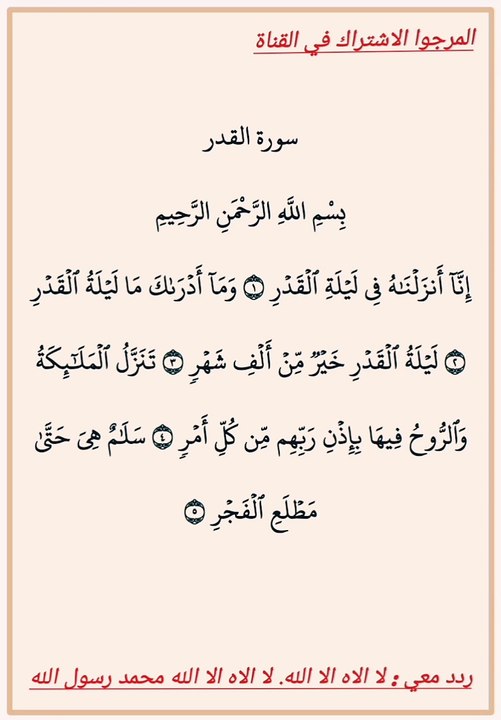 المرجوا الاشتراك في القناة
سورة القدر
بِسْمِ اللَّهِ الرَّحْمَنِ الرَّحِيمِ
إِنَّآ أَنزَلْنَـٰهُ فِى لَيْلَةِ ٱلْقَدْرِ ۝١ وَمَآ أَدْرَىٰكَ مَا لَيْلَةُ ٱلْقَدْرِ
۝٢ لَيْلَةُ ٱلْقَدْرِ خَيْرٌ مِّنْ أَلْفِ شَهْرٍ ۝٣ تَنَزَّلُ ٱلْمَلَـٰٓئِكَةُ
وَٱلرُّوحُ فِيهَا بِإِذْنِ رَبِّهِم مِّن كُلِّ أَمْرٍ ۝٤ سَلَـٰمٌ هِىَ حَتَّىٰ
مَطْلَعِ ٱلْفَجْرِ ۝٥
ردد معي : لا الاه الا الله. لا الاه الا الله محمد رسول الله